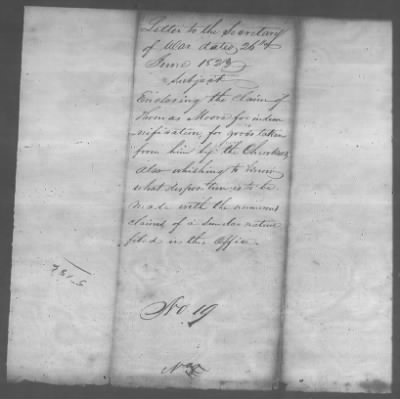 Letter to the Secretary
of War dated 26th
June 1823
Subject
Enclosing the claim of
Thomas Moore for indem
nification for goods taken
from him by the Cherokees
also whishing to know
what disposition is to be
made with the numerous
claims of a similar nature
filed in this Office
No. 19